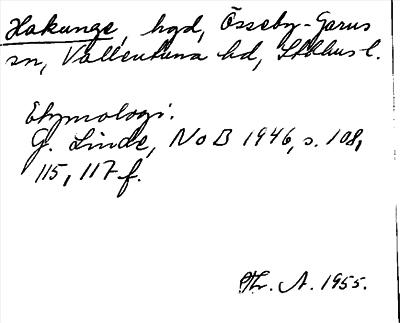 Hakunge, hgd, Össeby-Garns
sn, Vallentuna hd, Sthlms l.
Etymologi.
G. Linde, NoB 1946, s. 108,
115, 117 f.
Thr. A. 1955.